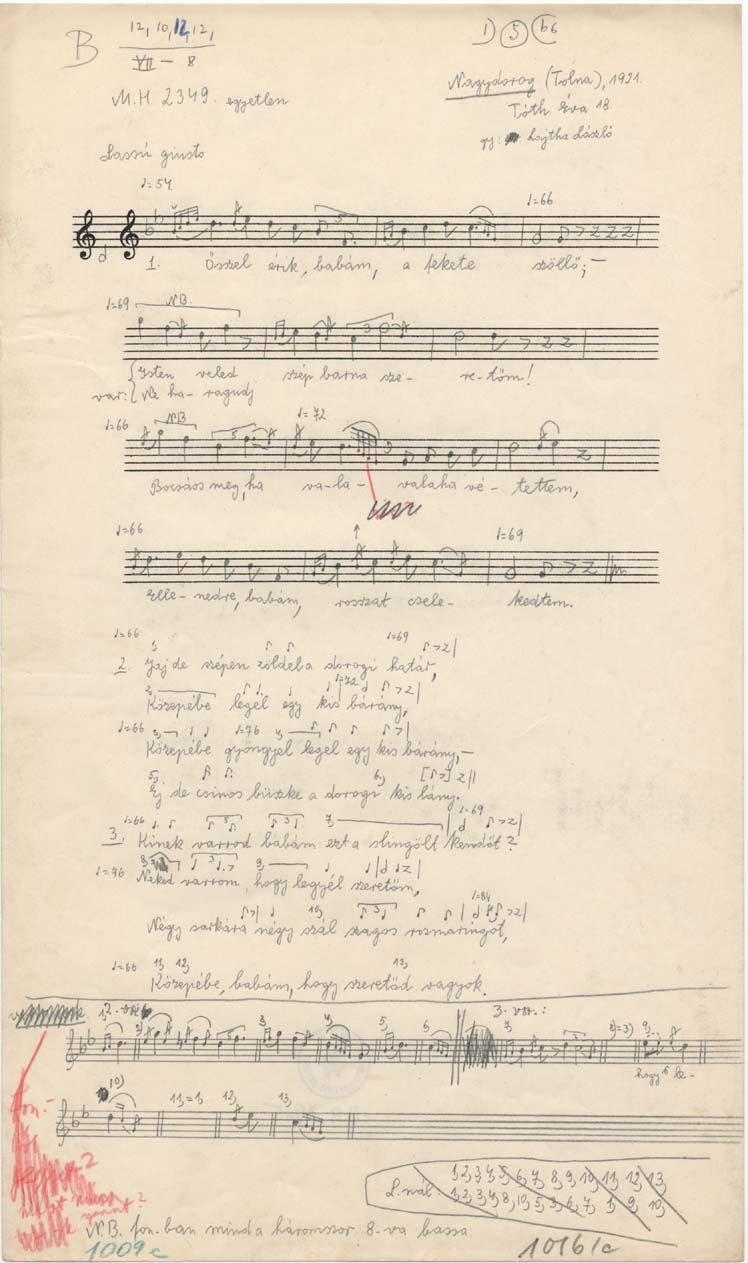 B 12, 10, 12, 12,
VII – 8
1) 5 b6
M.H 2349. egyetlen
Nagydorog (Tolna), 1921.
Tóth Éva 18
gy: Lajtha László
Lassú giusto
♩=54
♩=66
1. Ősszel érik, babám, a fekete szöllő;–
♩=69
NB.
Isten veled szép barna sze- re-tőm!
var: Ne ha- ragudj
♩=66
NB
♩=72
Bocsáss meg, ha va-la- valaha vé- tettem,
♩=66
♩=69
Elle- nedre, babám, rosszat csele- kedtem.
♩=66
♩=69
2. Jaj de szépen zöldel a dorogi határ,
♩=72
Közepébe legel egy kis bárány,
♩=66
♩=76
Közepébe gyöngyel legel egy kis bárány,–
5, 6,
Ej de csinos büszke a dorogi kis lány.
♩=66
7,
♩=69
3. Kinek varrod babám ezt a slingölt kendőt?
♩=76
8, 9,
Neked varrom, hogy legyél szeretőm,
10,
♩=84
Négy sarkára négy szál szagos rozmaringot,
♩=66
11, 12, 13,
Közepébe, babám, hogy szeretőd vagyok.
3. vsz.:
hogy le-
10)
11,=1, 12, 13,
L.nál:
1, 2, 3, 4, 5, 6, 7, 8, 9, 10, 11, 12, 13,
1, 2, 3, 4, 8, 10, 5, 3, 6, 7, 1, 9, 10,
fon.-
N.B. fon.ban mind a háromszor 8-va bassa.
1009 c
1016/c